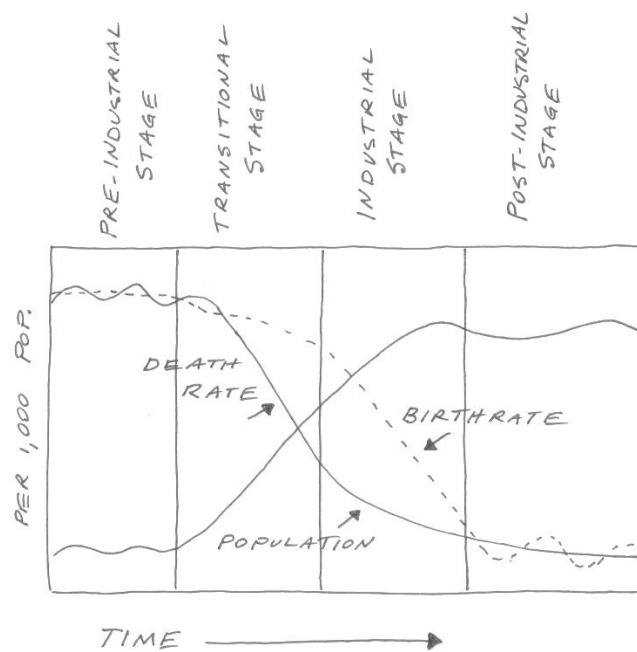 PRE-INDUSTRIAL
STAGE
TRANSITIONAL
STAGE
INDUSTRIAL
STAGE
POST-INDUSTRIAL
STAGE
PER 1,000 POP.
DEATH
RATE
BIRTHRATE
POPULATION
TIME